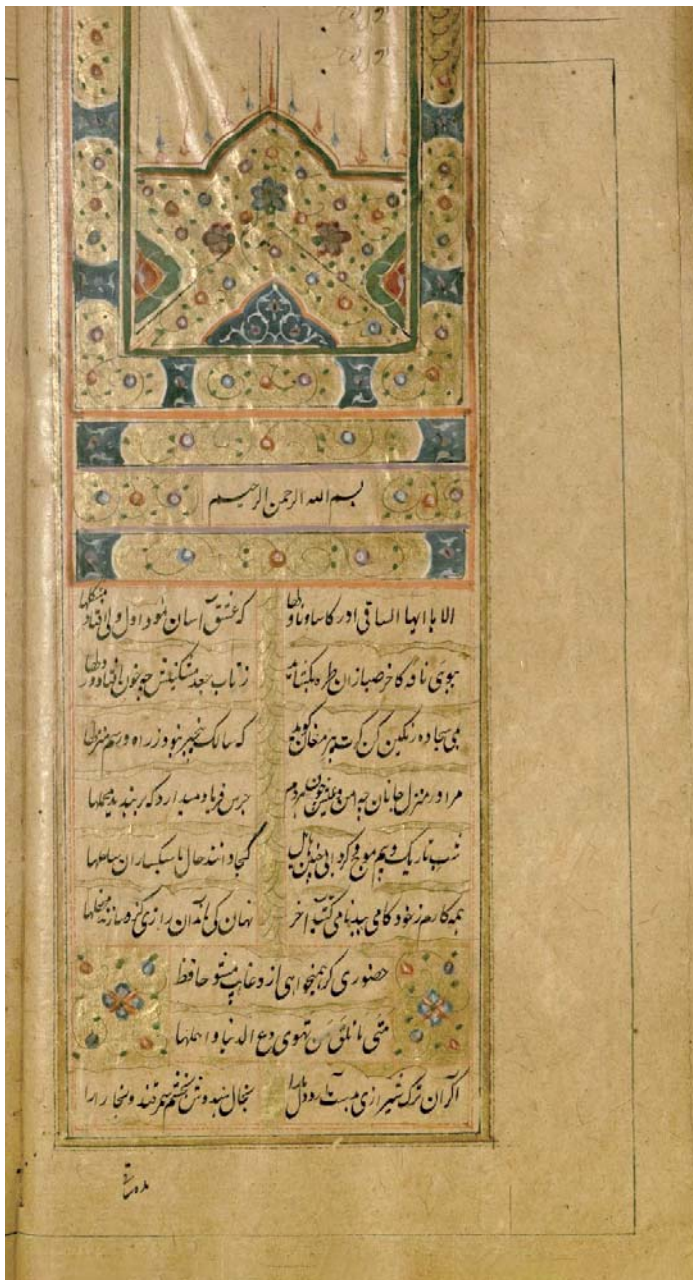 بسم الله الرحمن الرحیم
الا یا ایها الساقی ادر کاسا وناولها که عشق آسان نمود اول ولی افتاد مشکلها
ببوی نافه کاخر صبا زان طره بکشاید ز تاب جعد مشکینش چه خون افتاد در دلها
بمی سجاده رنکین کن کرت پیر مغان کوید که سالک بیخبر نبود ز راه و رسم منزلها
مرا در منزل جانان چه امن و عیش چون هر دم جرس فریاد میدارد که بربندید محملها
شب تاریک و بیم موج و کردابی چنین هایل کجا دانند حال ما سبکباران ساحلها
همه کارم ز خود کامی ببدنامی کشید آخر نهان کی ماند آن رازی کزو سازند محفلها
حضوری کر همیخواهی ازو غایب مشو حافظ
متی ما تلق من تهوی دع الدنیا و اهملها
اکر آن ترک شیرازی بدست آرد دل ما را بخال هندوش بخشم سمرقند و بخارا را
بده ساقی